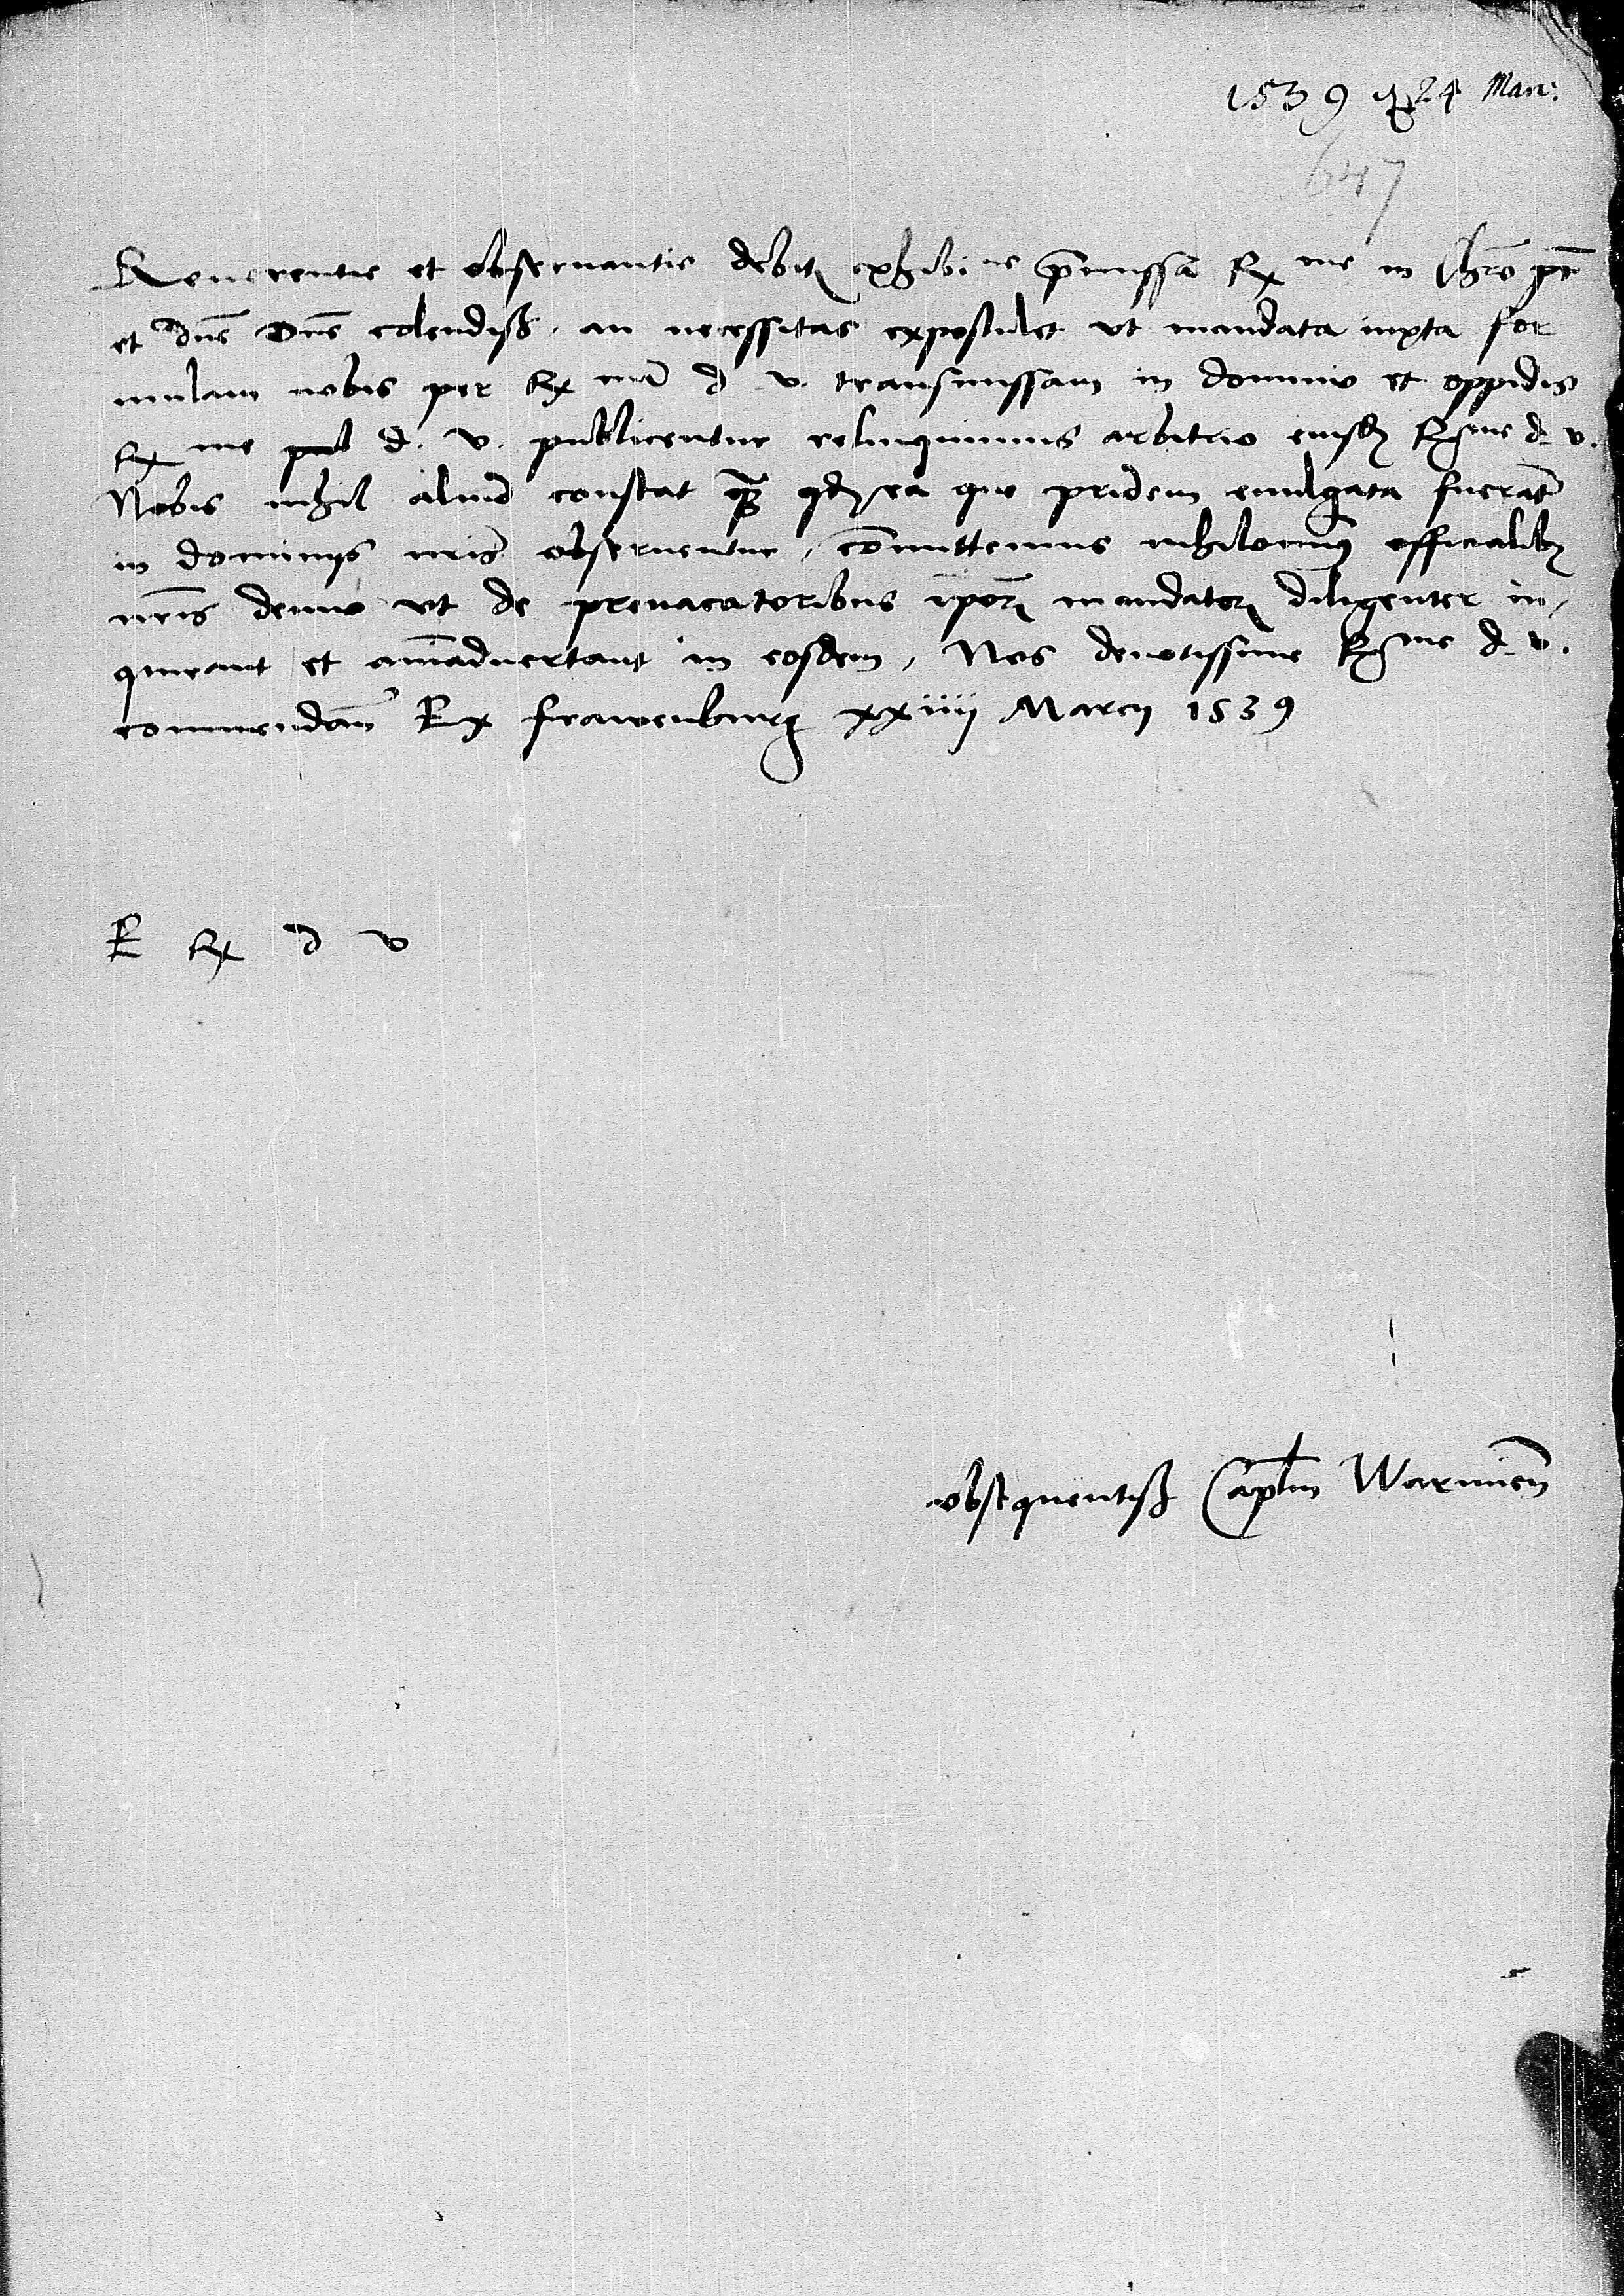 1539 24 Mar:
647
Reuerentie et obseruantie debitę exhibi ne p̄missa Rx me in Chr̄o pr̄
et dn̄e Dn̄e colendiss. an necessitas expostulet vt mandata iuxta for
mulam nobis per Rx ma d v. transmissam in dominio et oppidis
Rx me pub d. v. publicentur relinquimus arbitrio eiusdꝫ R me d. v.
Nobis nihil aliud constat qꝫ qdꝫ ea que pridem emulgata fuerāt
in dominijs nr̄is obseruentur, cōmittemus nihilominꝰ officialibꝫ
nr̄is denuo vt de preuaricatoribus ip̄orꝫ mandatorꝫ diligenter in,
quirant et aīaduertant in eosdem, Nos deuotissime R me d. v.
commendam̄ Ex frawenburg xxiiii Marcij 1539
E Rx d v
obsequentiss Capl̄m Warmien̄